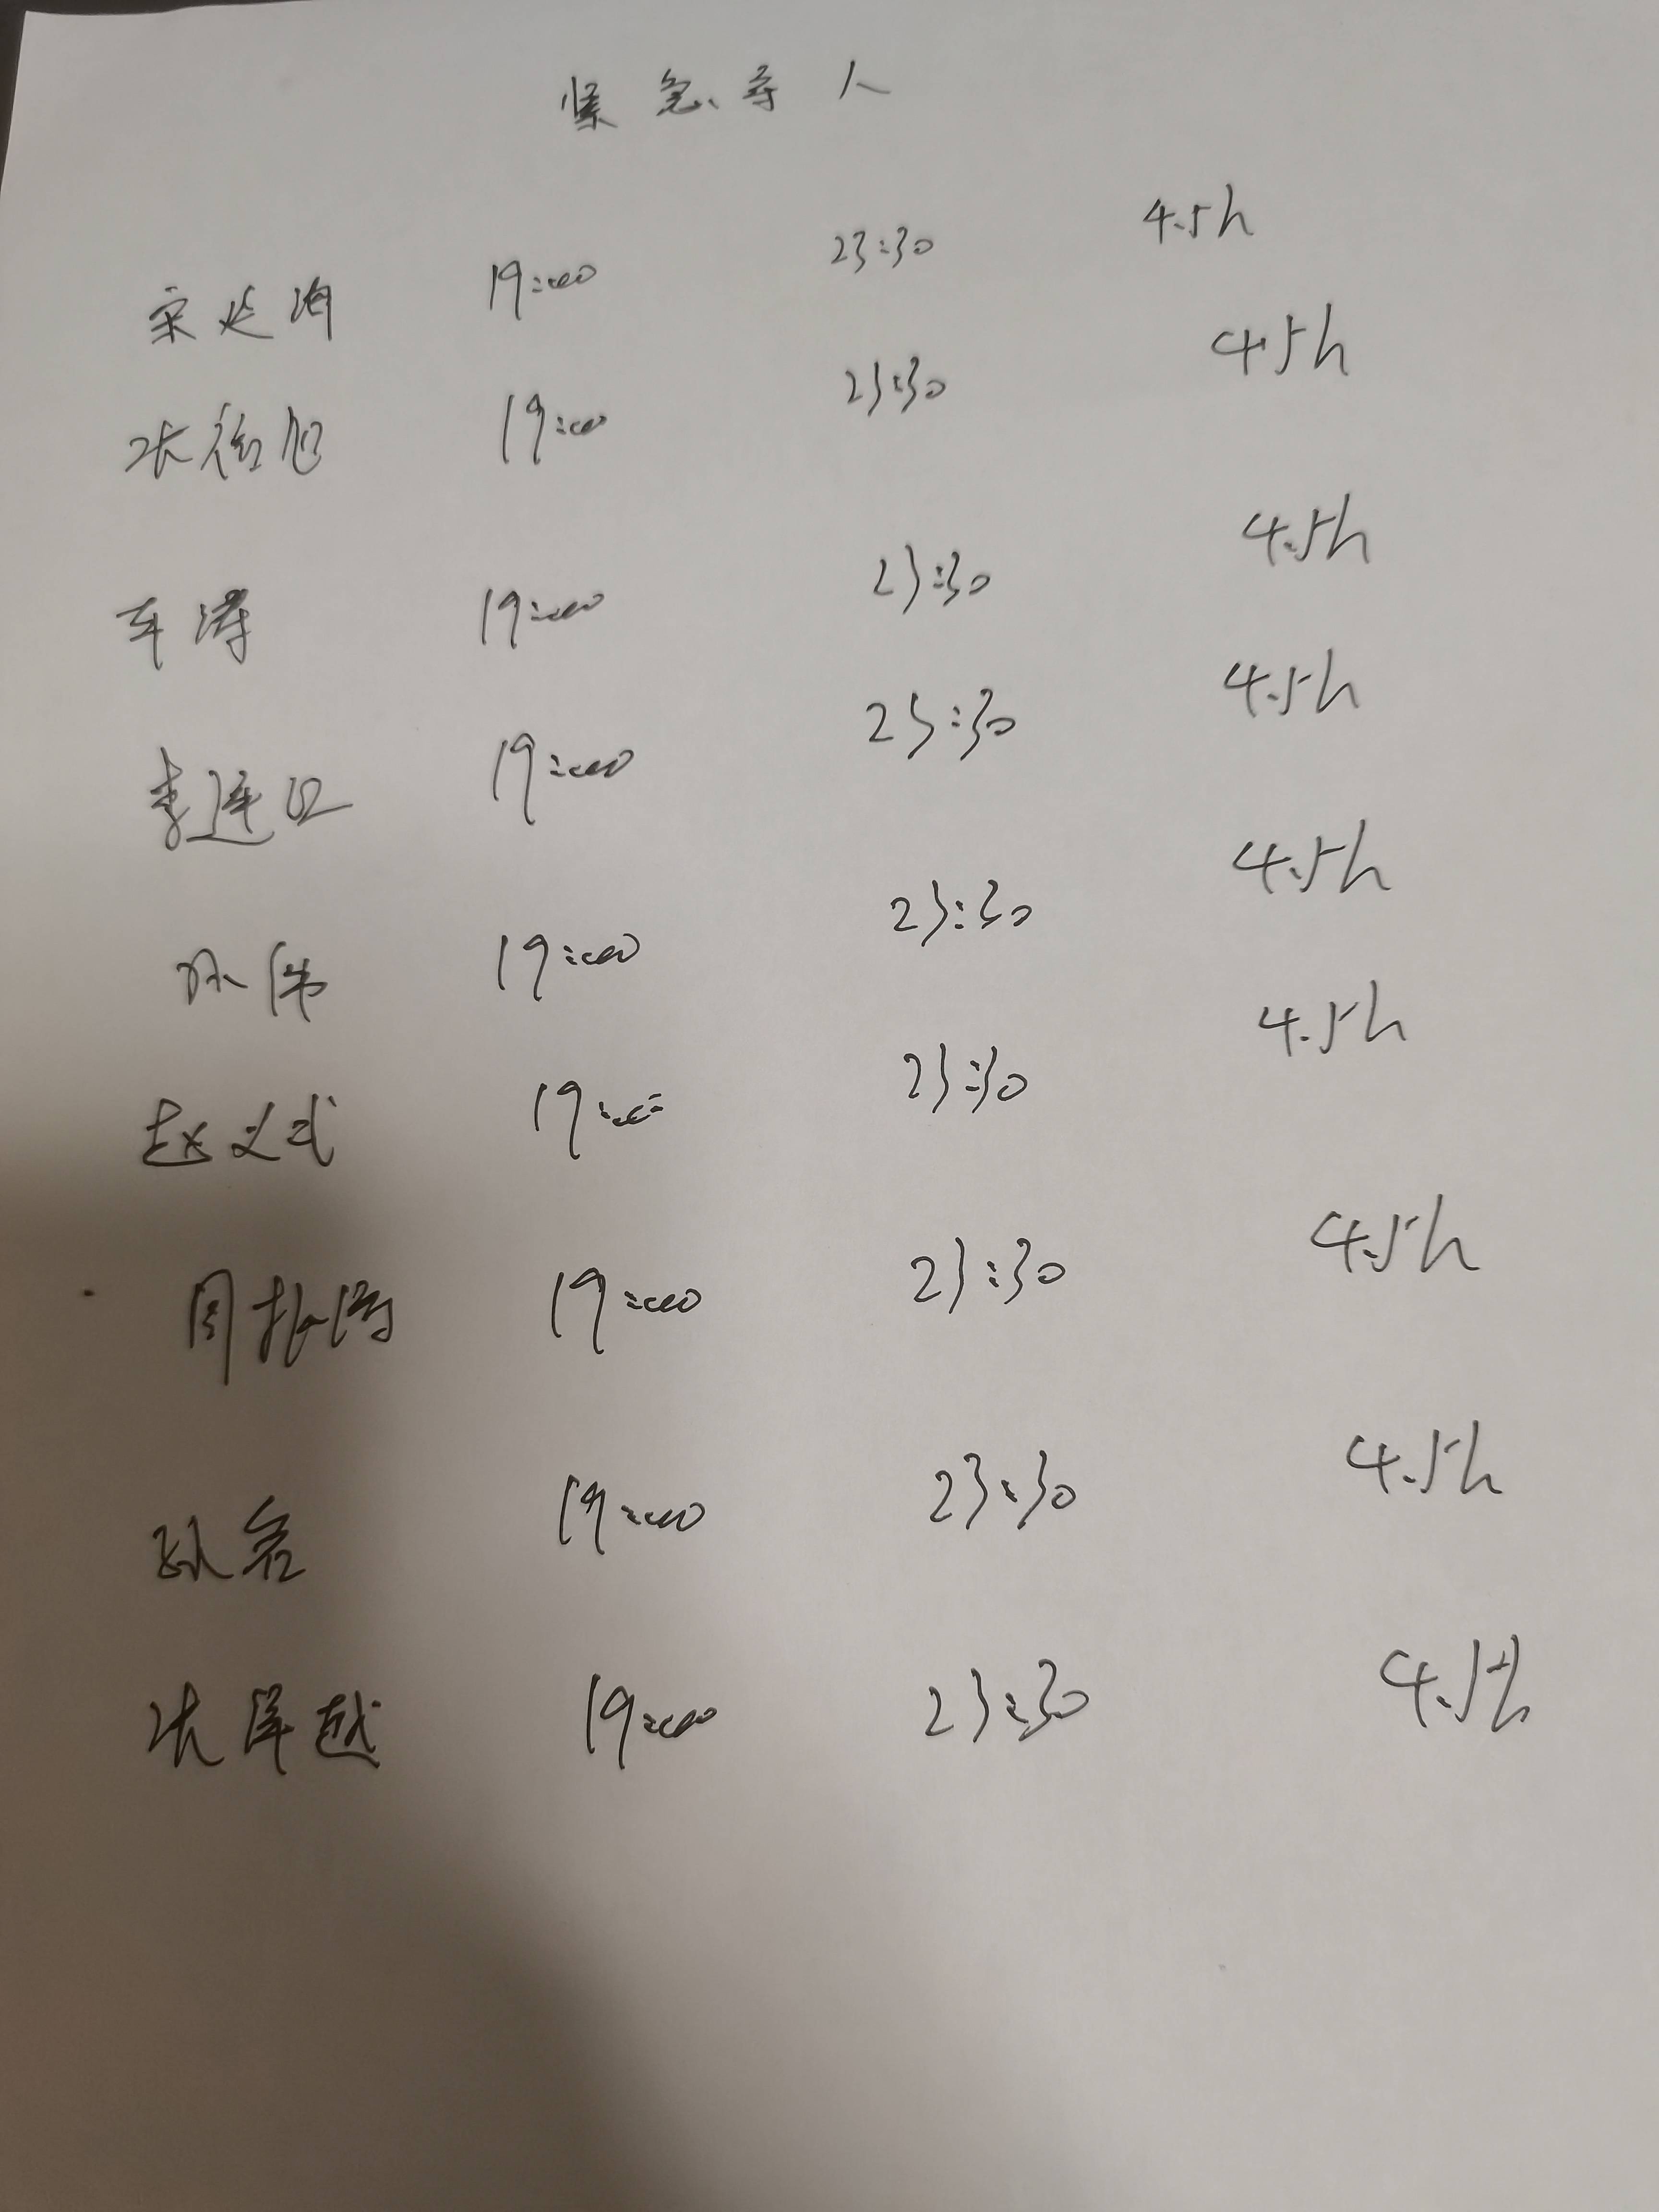 紧急寻人
宋延海 19:00 23:30 4.5h
张德旭 19:00 23:30 4.5h
车涛 19:00 23:30 4.5h
李连 19:00 23:30 4.5h
孙伟 19:00 23:30 4.5h
赵文武 19:00 23:30 4.5h
周振海 19:00 23:30 4.5h
孙岩 19:00 23:30 4.5h
张卓越 19:00 23:30 4.5h